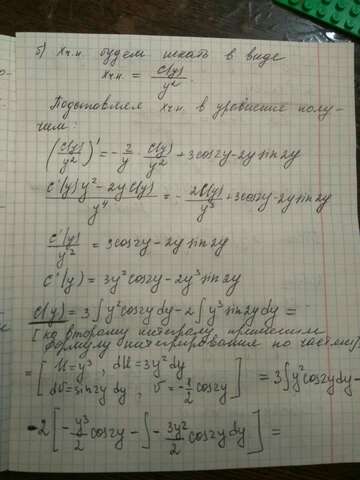 б) xч.н. будем искать в виде
xч.н. = C(y)/y²
Подставляя xч.н. в уровнение полу-
чим:
(C(y)/y²)' = -2/y C(y)/y² + 3cos2y - 2y sin2y
(C'(y)y² - 2y C(y))/y⁴ = - 2C(y)/y³ + 3cos2y - 2y sin2y
C'(y)/y² = 3cos2y - 2y sin2y
C'(y) = 3y²cos2y - 2y³sin2y
C(y) = 3∫y²cos2y dy - 2∫y³sin2y dy =
[ко второму интегралу применим
формулу интегрирования по частям]
= [U = y³, dU = 3y²dy
dV = sin2y dy, V = -1/2 cos2y] = 3∫y²cos2y dy -
-2[-y³/2 cos2y - ∫ - 3y²/2 cos2y dy] =